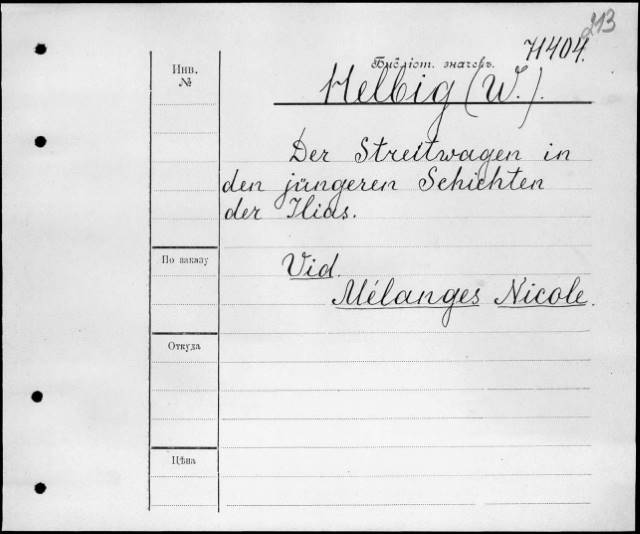 213
H404.
Инв. №
Библіот. значекъ.
Helbig (W.).
Der Streitwagen in
den jüngeren Schichten
der Ilias.
По заказу
Vid.
Mélanges Nicole.
Откуда
Цѣна